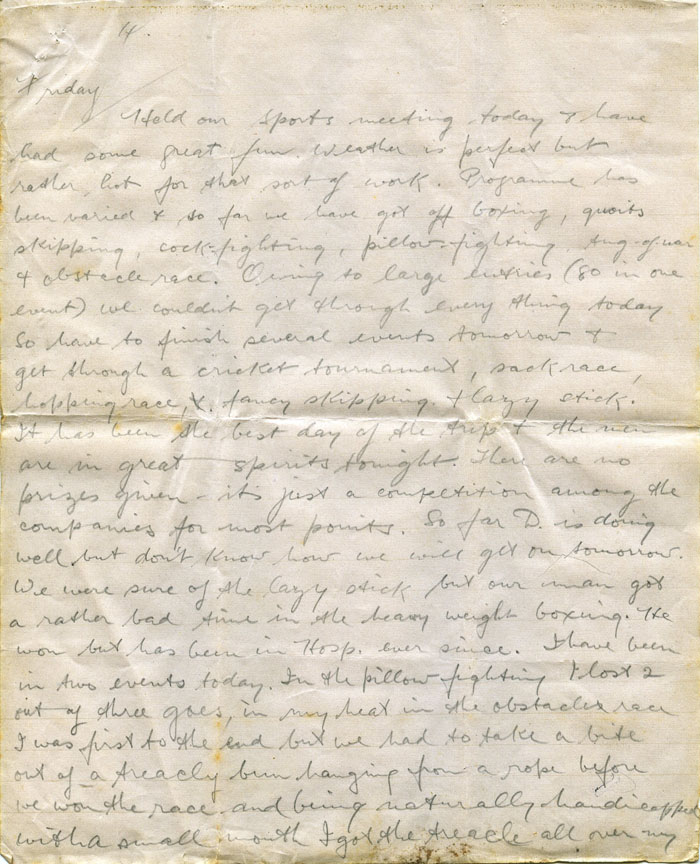 14.
Friday
Held our sports meeting today & have
had some great fun. Weather is perfect but
rather hot for that sort of work. Programme has
been varied & so far we have got off boxing, quoits
skipping, cock-fighting, pillow-fighting tug-of-war
& obstacle race. Owing to large entries (80 in one
event) we couldn't get through every thing today
So have to finish several events tomorrow &
get through a cricket tournament, sack race,
hopping race, &. fancy skipping & lazy stick.
It has been the best day of the trip & the men
are in great spirits tonight. There are no
prizes given - it's just a competition among the
companies for most points. So far D. is doing
well but don't know how we will get on tomorrow.
We were sure of the lazy stick but our man got
a rather bad time in the heavy weight boxing. He
won but has been in Hosp. ever since. I have been
in two events today. In the pillow fighting I lost 2
out of three goes, in my heat in the obstacles race
I was first to the end but we had to take a bite
out of a treacly bun hanging from a rope before
we won the race and being naturally handicapped
with a small mouth I got the treacle all over my